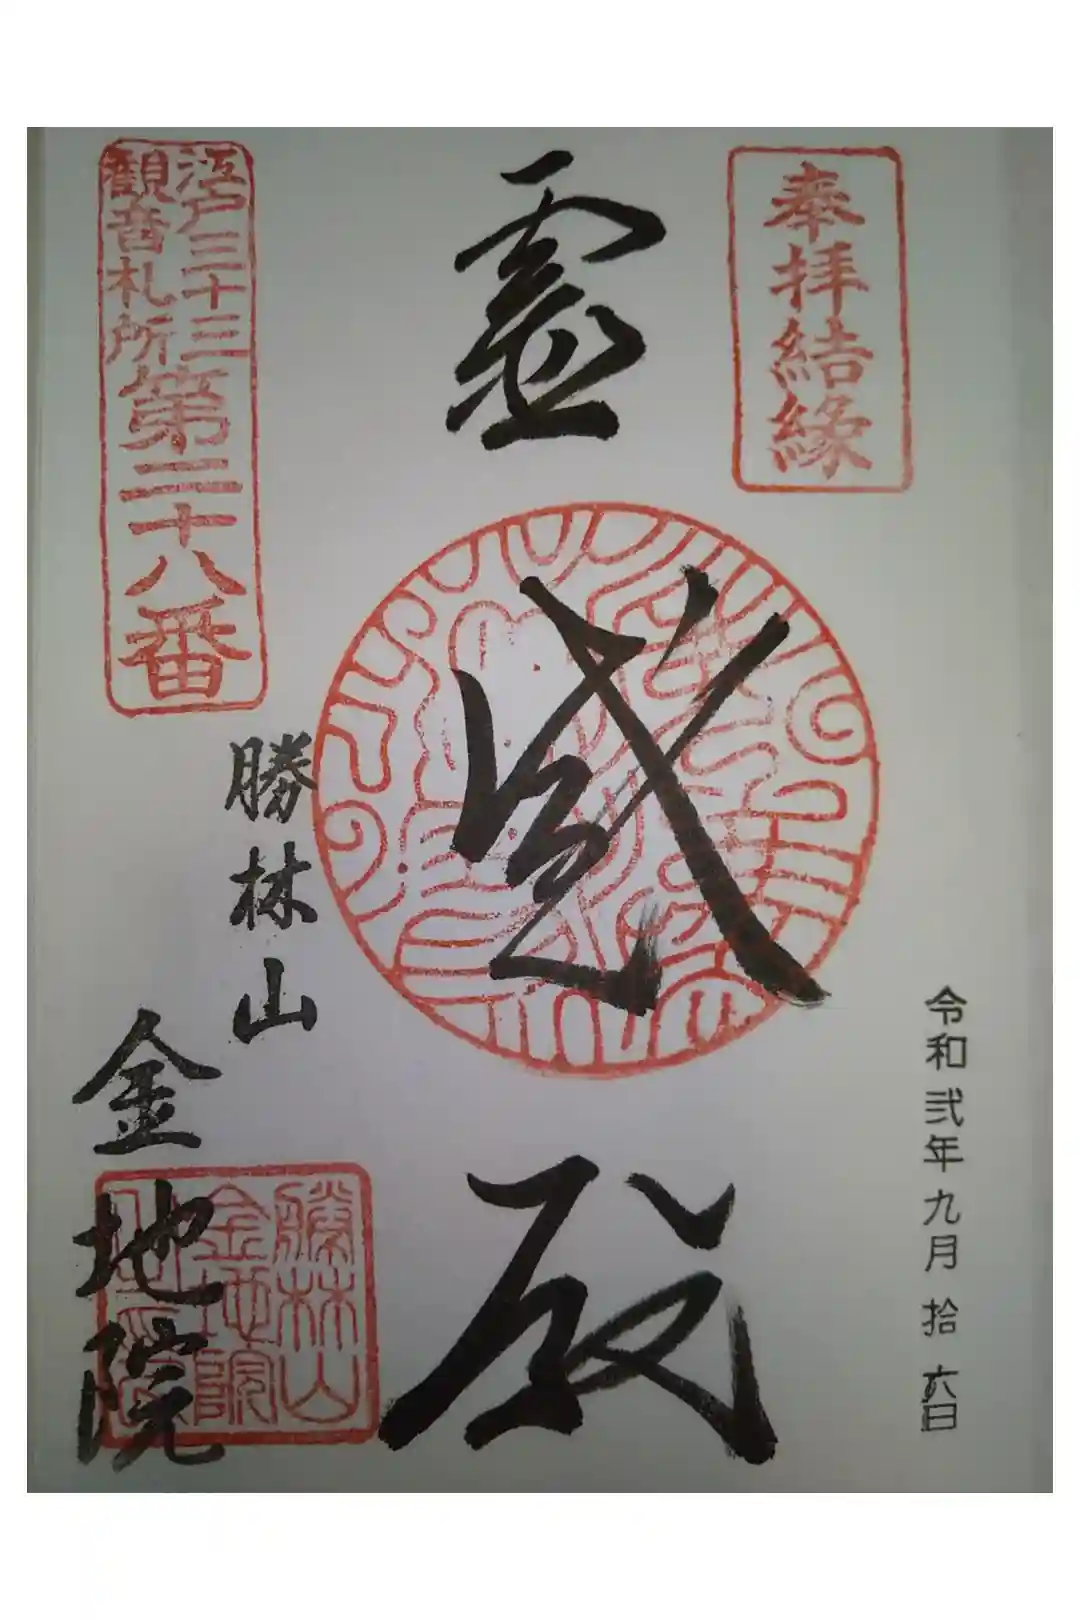 奉拝結縁
令和弐年九月拾六日
霊感殿
江戸三十三
観音札所
第二十八番
勝林山
金地院
勝林山
金地院